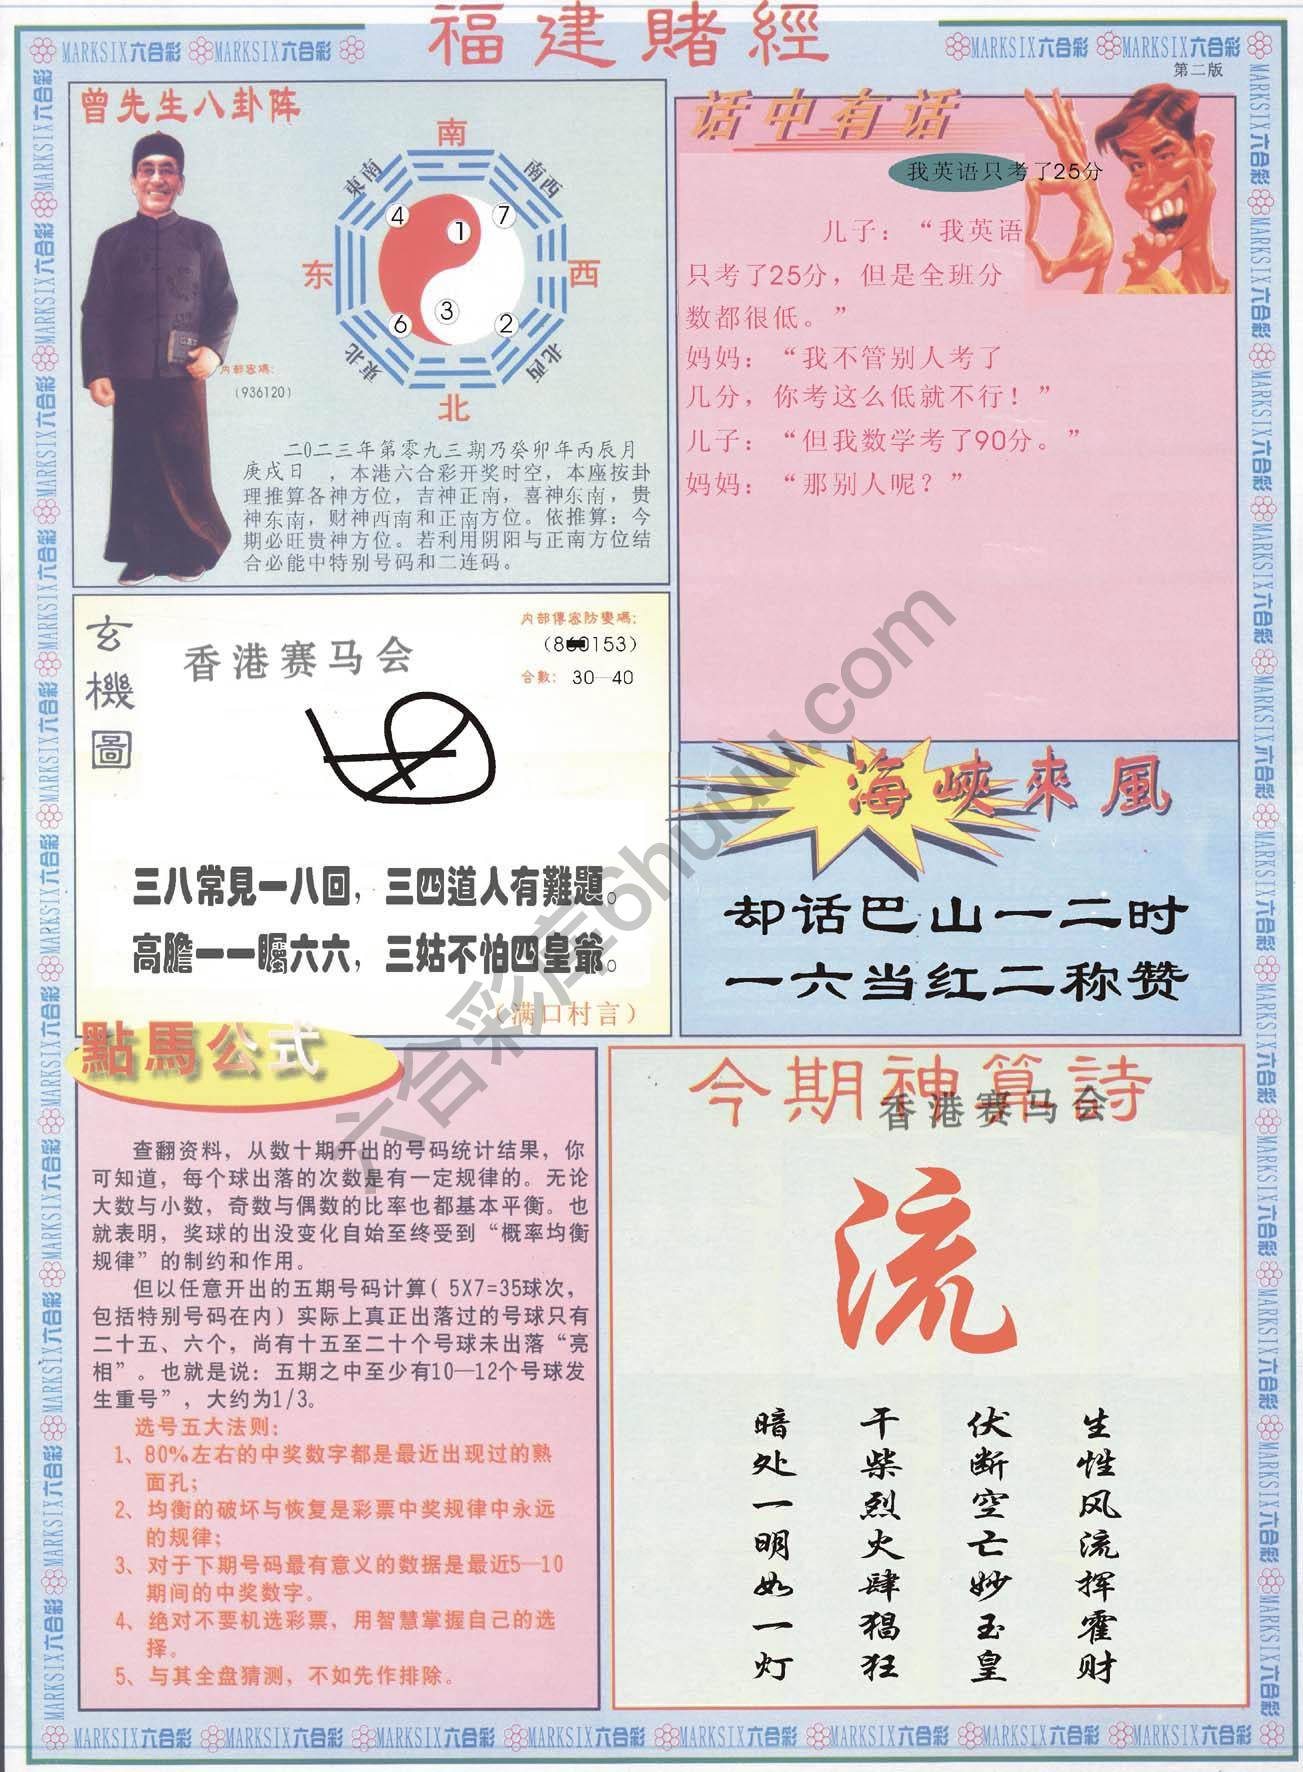 福建賭經
MARKSIX六合彩 MARKSIX六合彩
MARKSIX六合彩 MARKSIX六合彩
第二版
曾先生八卦阵
南
東南
南西
4
1
7
东
西
6
3
2
東北
北西
北
内部密碼：
（936120）
二0二三年第零九三期乃癸卯年丙辰月
庚戌日 ，本港六合彩开奖时空，本座按卦
理推算各神方位，吉神正南，喜神东南，贵
神东南，财神西南和正南方位。依推算：今
期必旺贵神方位。若利用阴阳与正南方位结
合必能中特别号码和二连码。
话中有话
我英语只考了25分
儿子：“我英语
只考了25分，但是全班分
数都很低。”
妈妈：“我不管别人考了
几分，你考这么低就不行！”
儿子：“但我数学考了90分。”
妈妈：“那别人呢？”
玄機圖
香港赛马会
内部傳密防變碼：
（860153）
合數： 30—40
三八常見一八回，三四道人有難題。
高膽一一矚六六，三姑不怕四皇爺。
（满口村言）
海峽來風
却话巴山一二时
一六当红二称赞
點馬公式
查翻资料，从数十期开出的号码统计结果，你
可知道，每个球出落的次数是有一定规律的。无论
大数与小数，奇数与偶数的比率也都基本平衡。也
就表明，奖球的出没变化自始至终受到“概率均衡
规律”的制约和作用。
但以任意开出的五期号码计算（5X7=35球次，
包括特别号码在内）实际上真正出落过的号球只有
二十五、六个，尚有十五至二十个号球未出落“亮
相”。也就是说：五期之中至少有10—12个号球发
生重号”，大约为1/3。
选号五大法则：
1、80%左右的中奖数字都是最近出现过的熟
面孔；
2、均衡的破坏与恢复是彩票中奖规律中永远
的规律；
3、对于下期号码最有意义的数据是最近5—10
期间的中奖数字。
4、绝对不要机选彩票，用智慧掌握自己的选
择。
5、与其全盘猜测，不如先作排除。
今期神算詩
香港赛马会
流
生性风流挥霍财
伏断空亡妙玉皇
干柴烈火肆猖狂
暗处一明如一灯
六合彩库6huuu.com
MARKSIX六合彩 MARKSIX六合彩 MARKSIX六合彩 MARKSIX六合彩 MARKSIX六合彩 MARKSIX六合彩 MARKSIX六合彩 MARKSIX六合彩